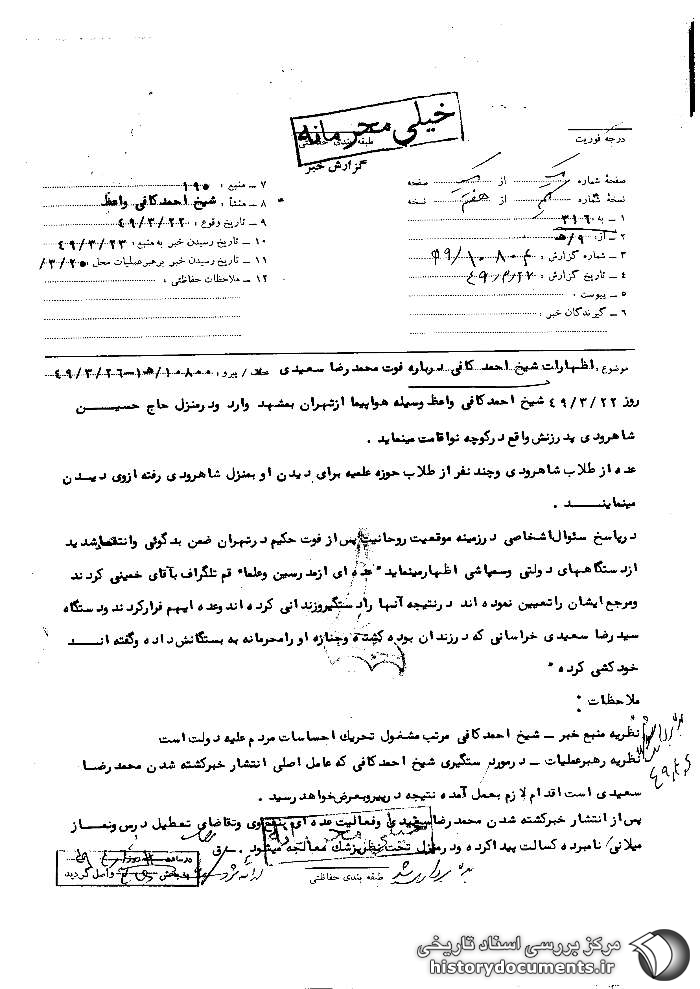 خیلی محرمانه
درجه فوریت
طبقه بندی حفاظتی
گزارش خبر
صفحهٔ شماره از صفحه
نسخهٔ شماره از هفتم نسخه
۱ ـ به ۳۱۶
۲ ـ از: ۹/ه‍
۳ ـ شماره گزارش :
۴ ـ تاریخ گزارش :
۵ ـ پیوست :
۶ ـ گیرندگان خبر :
۷ ـ منبع : ۱۹۰
۸ ـ منشأ : شیخ احمد کافی واعظ
۹ ـ تاریخ وقوع : ۴۹/۳/۲۲
۱۰ ـ تاریخ رسیدن خبر به منبع : ۴۹/۳/۲۳
۱۱ ـ تاریخ رسیدن خبر برهبر عملیات محل : /۳/۲۵
۱۲ ـ ملاحظات حفاظتی :
موضوع : اظهارات شیخ احمد کافی درباره فوت محمدرضا سعیدی / پیرو : ۱۰۸۰۰/ه‍۱-۴۹/۳/۲۶
روز ۴۹/۳/۲۲ شیخ احمد کافی واعظ وسیله هواپیما ازتهران بمشهد وارد ودرمنزل حاج حسین
شاهرودی پدرزنش واقع درکوچه نواقامت مینماید .
عده از طلاب شاهرودی وچند نفر از طلاب حوزه علمیه برای دیدن او بمنزل شاهرودی رفته ازوی دیدن
مینمایند .
درپاسخ سئوال اشخاصی درزمینه موقعیت روحانیت پس از فوت حکیم درتهران ضمن بدگوئی وانتقاد شدید
ازدستگاههای دولتی وسیاسی اظهارمینماید" عده ای ازمدرسین وعلماء قم تلگراف بآقای خمینی کردند
ومرجع ایشان راتعیین نموده اند درنتیجه آنها رادستگیروزندانی کرده اند وعده ایهم فرارکردند ودستگاه
سید رضا سعیدی خراسانی که درزندان بوده کشته وجنازه او رامحرمانه به بستگانش داده وگفته اند
خودکشی کرده "
ملاحظات :
نظریه منبع خبر ـ شیخ احمد کافی مرتب مشغول تحریک احساسات مردم علیه دولت است
نظریه رهبرعملیات ـ درمورد ستگیری شیخ احمد کافی که عامل اصلی انتشار خبرکشته شدن محمدرضا
سعیدی است اقدام لازم بعمل آمده نتیجه درپیرو بعرض خواهد رسید .
پس از انتشار خبرکشته شدن محمدرضا سعیدی وفعالیت عده ای وتقاضای تعطیل درس ونماز
میلانی/ نامبرده کسالت پیدا کرده ودرمنزل تحت نظر پزشک معالجه میشود .
طبقه بندی حفاظتی
در ساعت روز
به بخش واصل گردید
مرکز بررسی اسناد تاریخی
historydocuments.ir